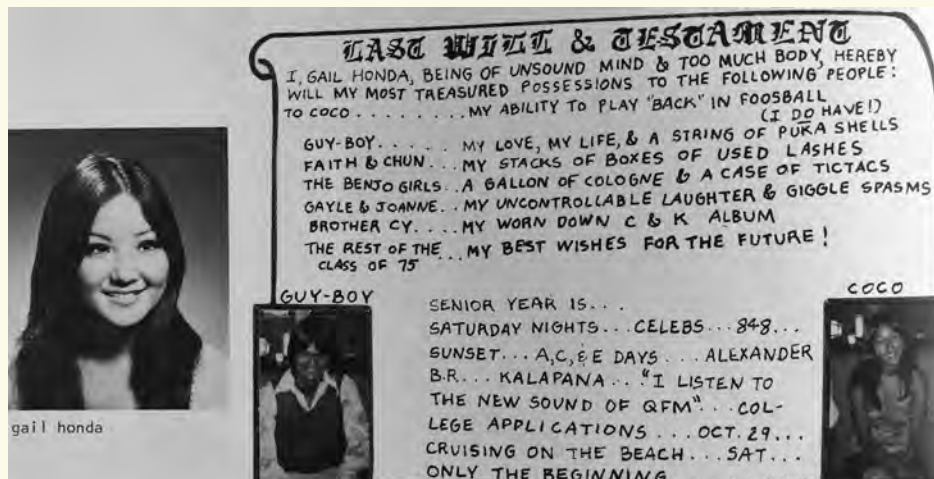 LAST WILL & TESTAMENT
I, GAIL HONDA, BEING OF UNSOUND MIND & TOO MUCH BODY, HEREBY
WILL MY MOST TREASURED POSSESSIONS TO THE FOLLOWING PEOPLE:
TO COCO ......... MY ABILITY TO PLAY "BACK" IN FOOSBALL
(I DO HAVE!)
GUY-BOY..... MY LOVE, MY LIFE, & A STRING OF PUKA SHELLS
FAITH & CHUN... MY STACKS OF BOXES OF USED LASHES
THE BENJO GIRLS.. A GALLON OF COLOGNE & A CASE OF TICTACS
GAYLE & JOANNE.. MY UNCONTROLLABLE LAUGHTER & GIGGLE SPASMS
BROTHER CY.... MY WORN DOWN C & K ALBUM
THE REST OF THE ... MY BEST WISHES FOR THE FUTURE!
CLASS OF 75
gail honda
GUY-BOY
COCO
SENIOR YEAR IS...
SATURDAY NIGHTS... CELEBS... 848...
SUNSET... A,C,& E DAYS ... ALEXANDER
B.R... KALAPANA... "I LISTEN TO
THE NEW SOUND OF QFM"... COL-
LEGE APPLICATIONS ... OCT. 29...
CRUISING ON THE BEACH... SAT...
ONLY THE BEGINNING